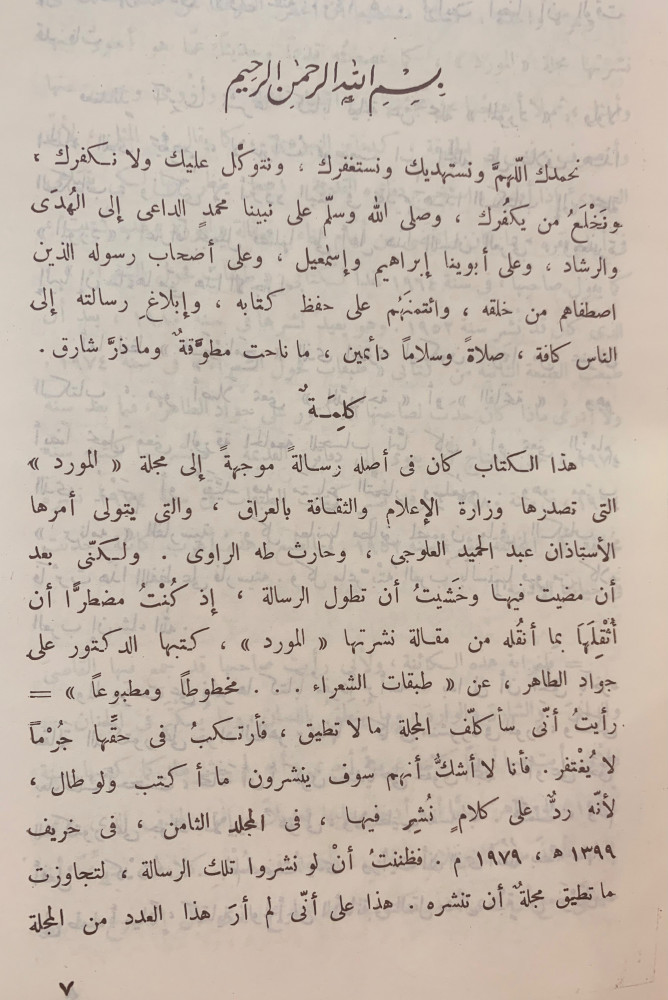 بسم الله الرحمن الرحيم
نحمدك اللّهمَّ ونستهديك ونستغفرك ، ونتوكّل عليك ولا نكفرك ،
ونَخْلَعُ من يكفُرك ، وصلى الله وسلّم على نبينا محمدٍ الداعى إلى الهُدَى
والرشاد ، وعلى أبوينا إبراهيم وإسْمعيل ، وعلى أصحاب رسوله الذين
اصطفاهم من خلقه ، وائتمنَهُم على حفظ كتابه ، وإبلاغِ رسالته إلى
الناس كافة ، صلاةً وسلاماً دائمين ، ما ناحت مطوَّقةٌ وما ذرَّ شارق .
كلِمَةٌ
هذا الكتاب كان فى أصله رسالةً موجهةً إلى مجلة « المورد »
التى تصدرها وزارة الإعلام والثقافة بالعراق ، والتى يتولى أمرها
الأستاذان عبد الحميد العلوجى ، وحارث طه الراوى . ولكنّى بعد
أن مضيت فيها وخَشيتُ أن تطول الرسالة ، إذ كُنْتُ مضطرًّا أن
أُثْقِلَهَا بما أنقُله من مقالة نشرتها « المورد » ، كتبها الدكتور على
جواد الطاهر ، عن « طبقات الشعراء . . . مخطوطاً ومطبوعاً » =
رأيتُ أنّى سأكلّف المجلة ما لا تطيق ، فأرتكبُ فى حقِّها جُرْماً
لا يُغْتفر . فأنا لا أشكُّ أنهم سوف ينشرون ما أكتب ولو طال ،
لأنّه ردٌّ على كلامٍ نُشِر فيها ، فى المجلد الثامن ، فى خريف
١٣٩٩ ه ، ١٩٧٩ م . فظننتُ أنْ لو نشروا تلك الرسالة ، لتجاوزت
ما تطيق مجلةٌ أن تنشره . هذا على أنّى لم أرَ هذا العدد من المجلة
٧